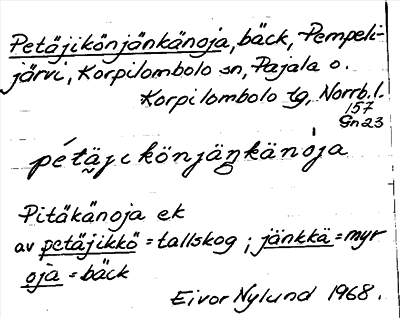 Petäjikönjänkänoja, bäck, Pempeli-
järvi, Korpilombolo sn, Pajala o.
Korpilombolo tg, Norrb. l.
157
Gn23
pétäjikönjäŋkänòja
Pitäkänoja ek
av petäjikkö = tallskog ; jänkkä = myr
oja = bäck
Eivor Nylund 1968.